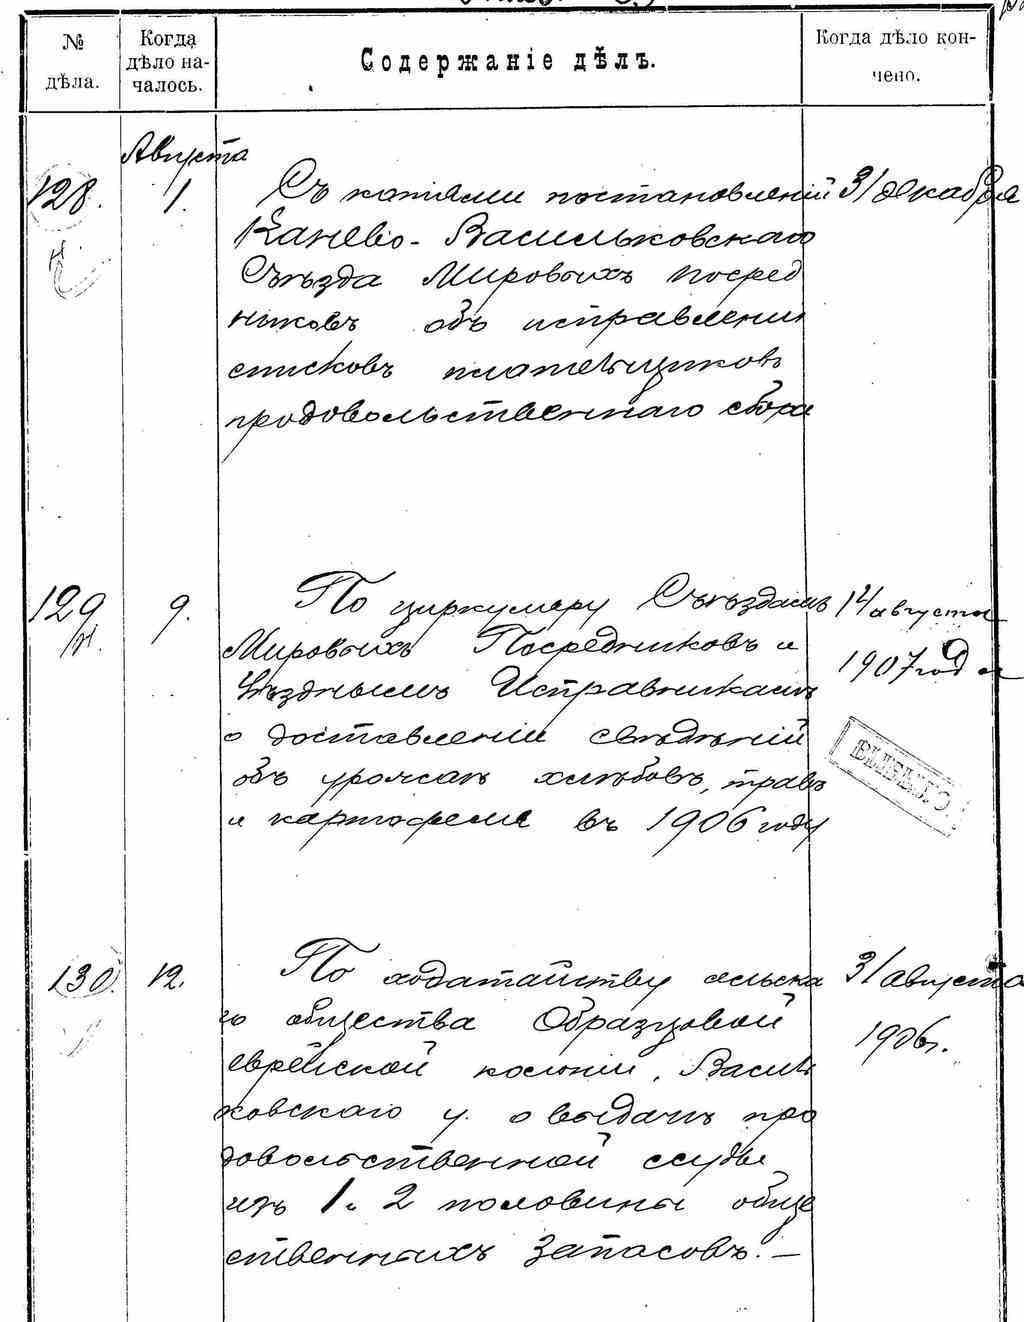 № дѣла.
Когда дѣло на-
чалось.
Содержаніе дѣлъ.
Когда дѣло кон-
чено.
Августа
128. 1. Съ копіями постановленій 31 декабря
Канево-Васильковскаго
Съѣзда Мировыхъ посред
никовъ объ исправленіи
списковъ плательщиковъ
продовольственнаго сбора
129 9. По циркуляру Съѣздамъ 14 августа
Мировыхъ Посредниковъ и
1907 года
Уѣзднымъ Исправникамъ
о доставленіи свѣдѣній
объ урожаѣ хлѣбовъ, травъ
и картофеля въ 1906 году
130. 12. По ходатайству сельска 31 августа
го общества Образцовой
1906 г.
еврейской колоніи, Василь
ковскаго у. о выдачѣ про
довольственной ссуды
изъ 1 и 2 половины обще
ственныхъ запасовъ. —